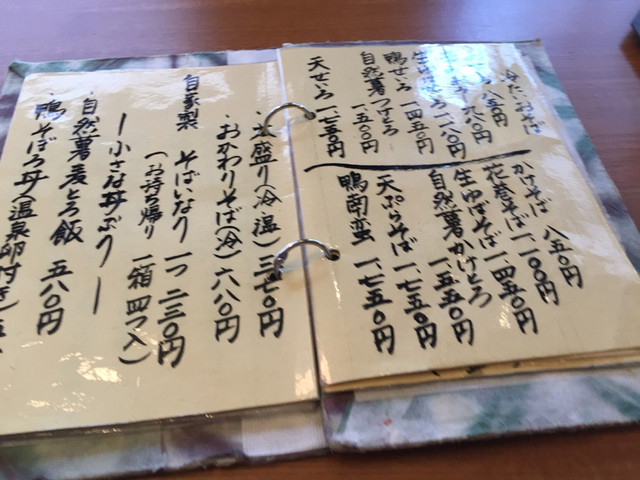 冷たいおそば
八五〇円
生ゆばせいろ 一、一八〇円
鴨せいろ 一、四五〇円
自然薯つけとろ 一、五〇〇円
天せいろ 一、七五〇円
かけそば 八五〇円
花巻そば 一、一〇〇円
生ゆばそば 一、四五〇円
自然薯かけとろ 一、五五〇円
天ぷらそば 一、七五〇円
鴨南蛮 一、七五〇円
盛り(冷・温) 三七〇円
おかわりそば(冷) 六八〇円
自家製 そばいなり 一つ 二三〇円
(お持ち帰り 一箱 四つ入)
ー小さな丼ぶりー
・自然薯麦とろ飯 五八〇円
・鴨そぼろ丼(温泉卵付き)